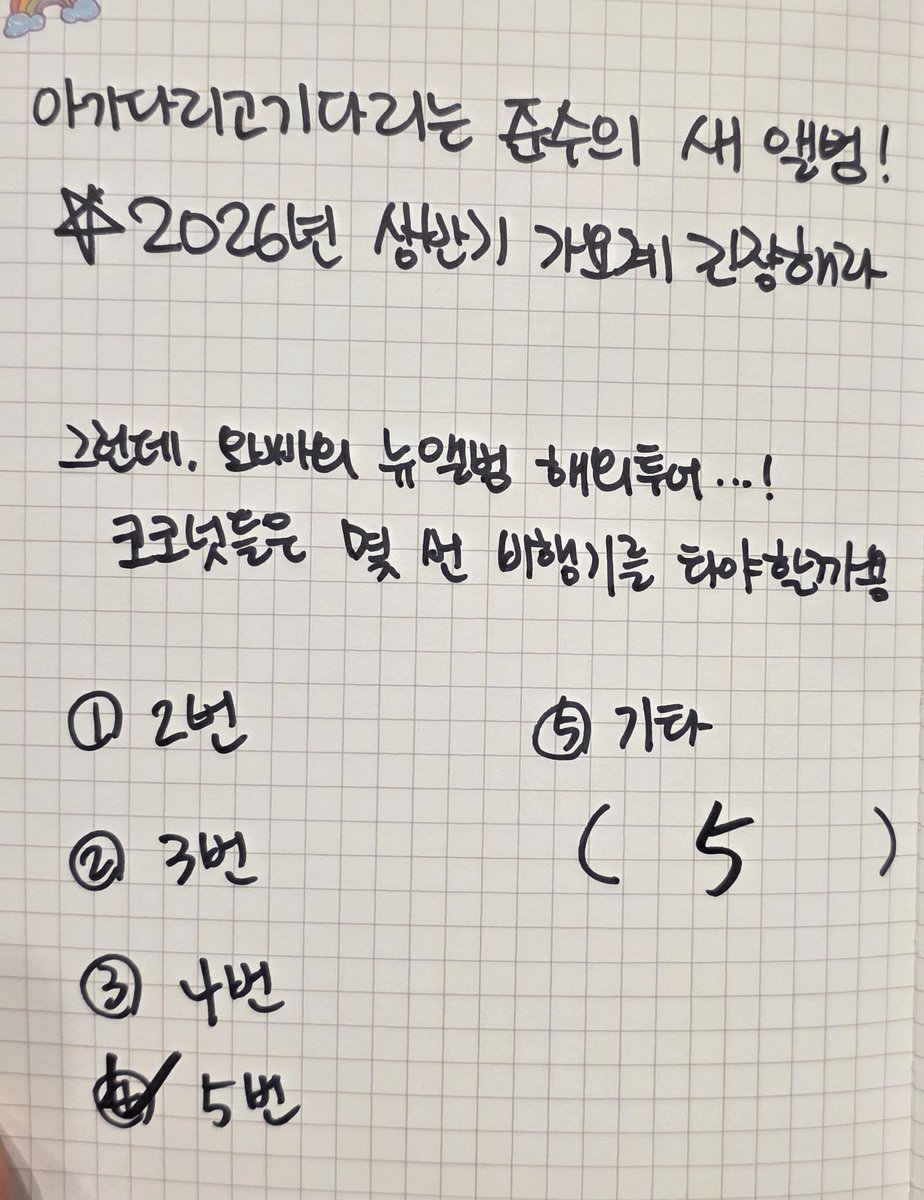 아기다리고기다리는 준수의 새 앨범!
☆2026년 상반기 가요계 긴장해라
그런데, 오빠의 뉴앨범 해외투어...!
코코넛들은 몇 번 비행기를 타야할까용
① 2번
② 3번
③ 4번
④ 5번
⑤ 기타
( 5 )